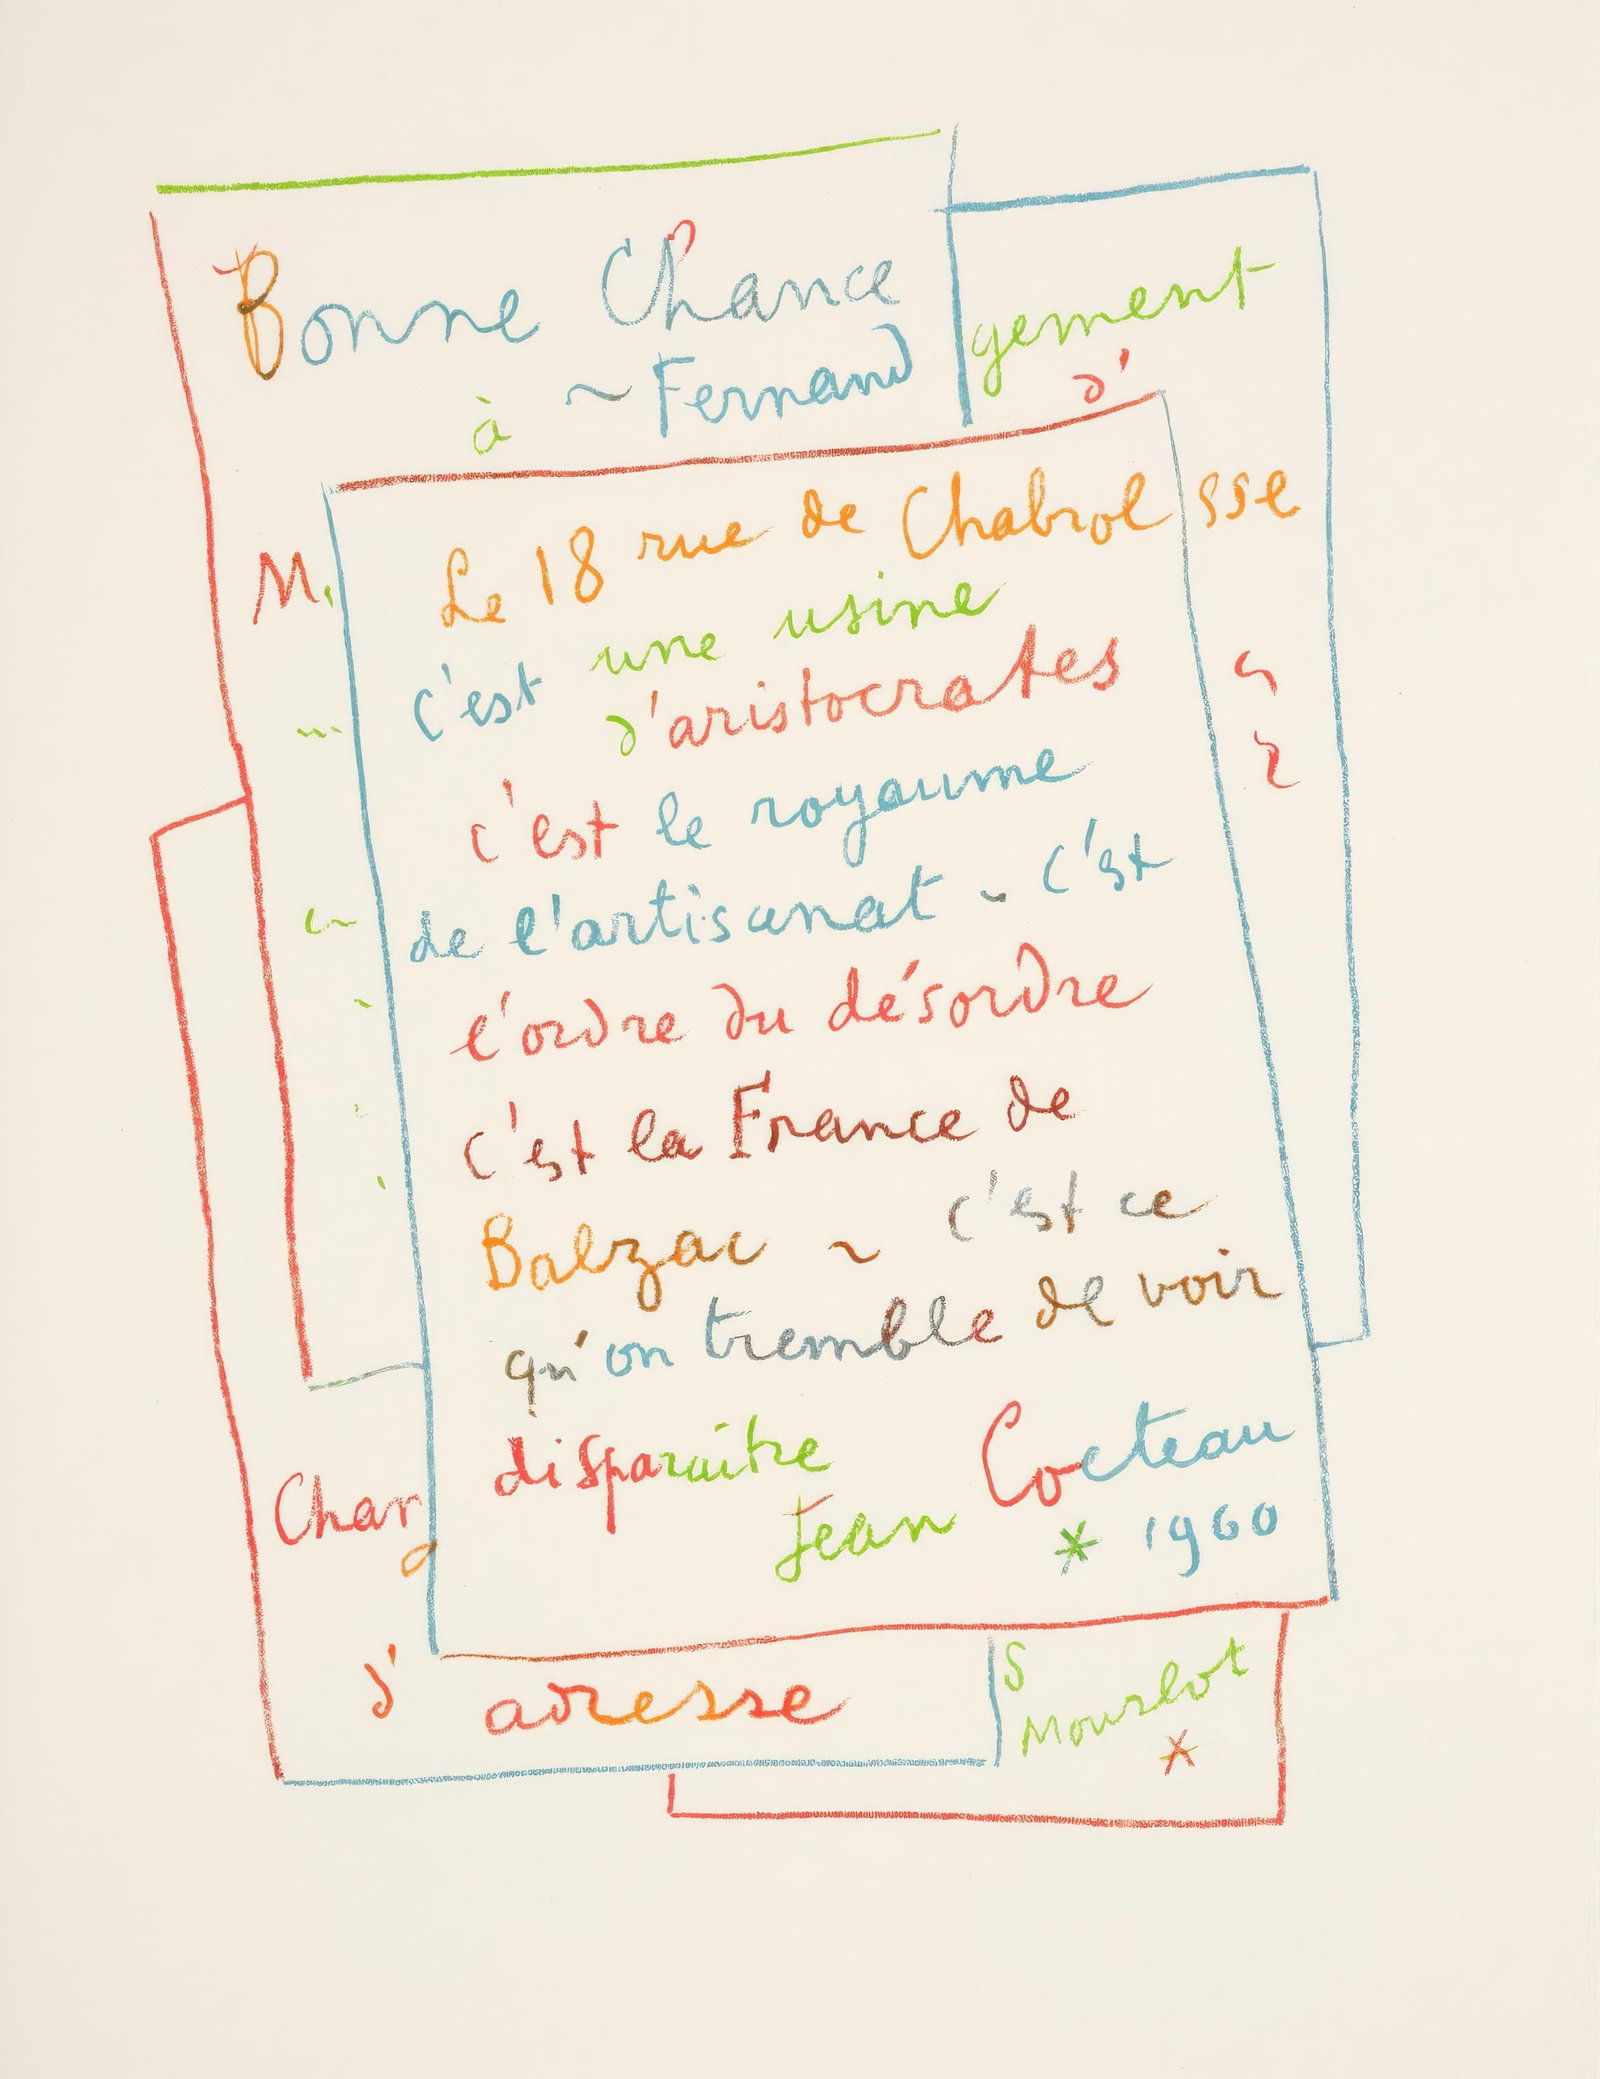 Bonne Chance
à ~ Fernand
gement
d'
M.
Le 18 rue de Chabrol
sse
c'est une usine
d'aristocrates
c'est le royaume
de l'artisanat - c'est
l'ordre du désordre
c'est la France de
Balzac ~ c'est ce
qu'on tremble de voir
disparaître
Jean Cocteau
* 1960
Chang
d'adresse
S
Mourlot
*